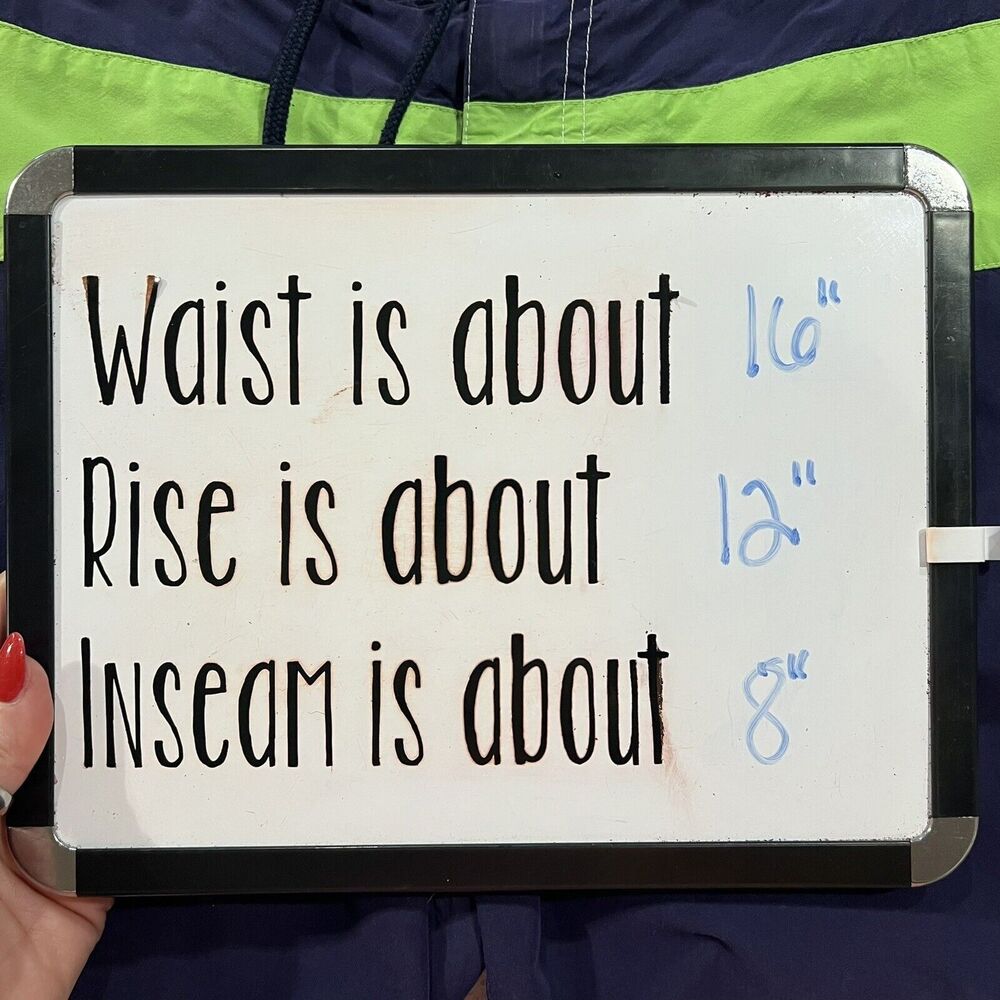 Waist is about 16"
Rise is about 12"
Inseam is about 8"